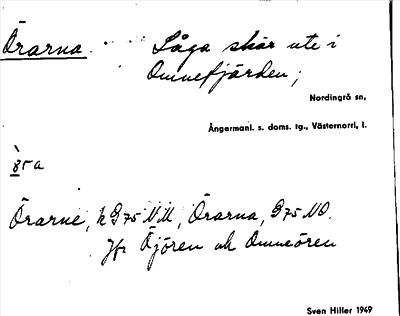 Örarna. Låga skär ute i
Omnefjärden;
Nordingrå sn,
Ångermanl. s. doms. tg., Västernorrl, l.
Örarne, k G75 NM, Örarna, G75 NO.
Jfr Öjören och Omneören
Sven Hiller 1949